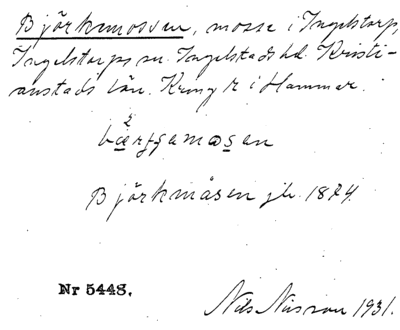 Björkmossen, mosse i Ingelstorp,
Ingelstorps sn. Ingelstads hd. Kristi-
anstads län. Kring R i Hammar.
Björkmåsen jb. 1874.
Nr 5448.
Nils Nilsson 1931.